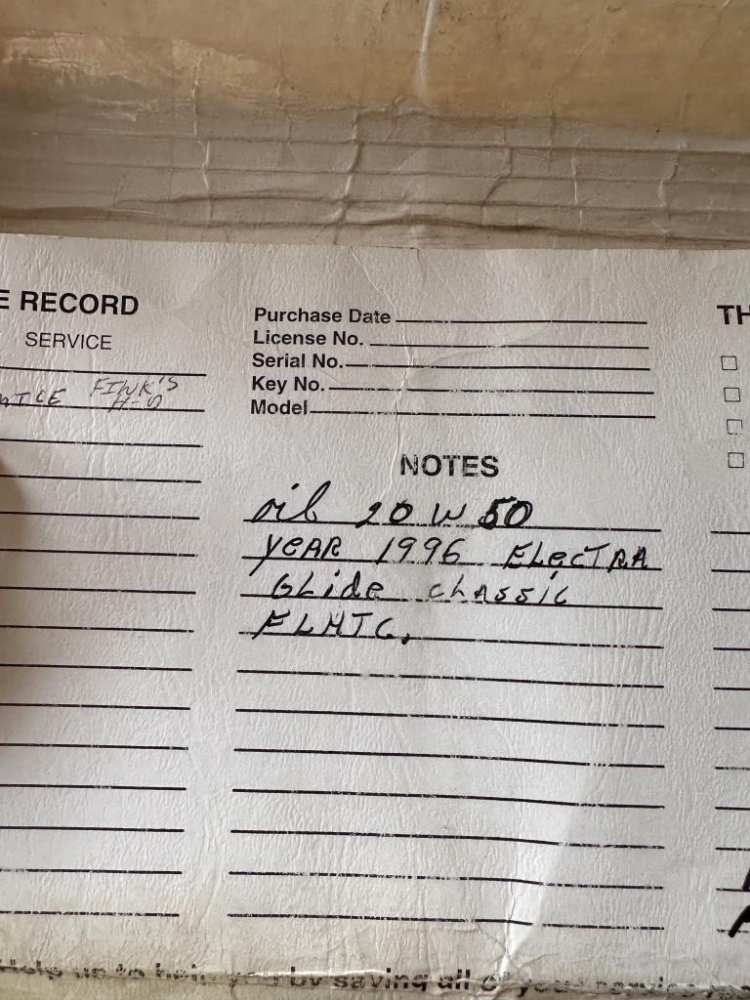 E RECORD
SERVICE
FINK'S
H-D
Purchase Date
License No.
Serial No.
Key No.
Model
NOTES
oil 20 W 50
YEAR 1996 ELECTRA
GLide cLASSIC
FLHTC.
TH
Help us to help you by saving all of your